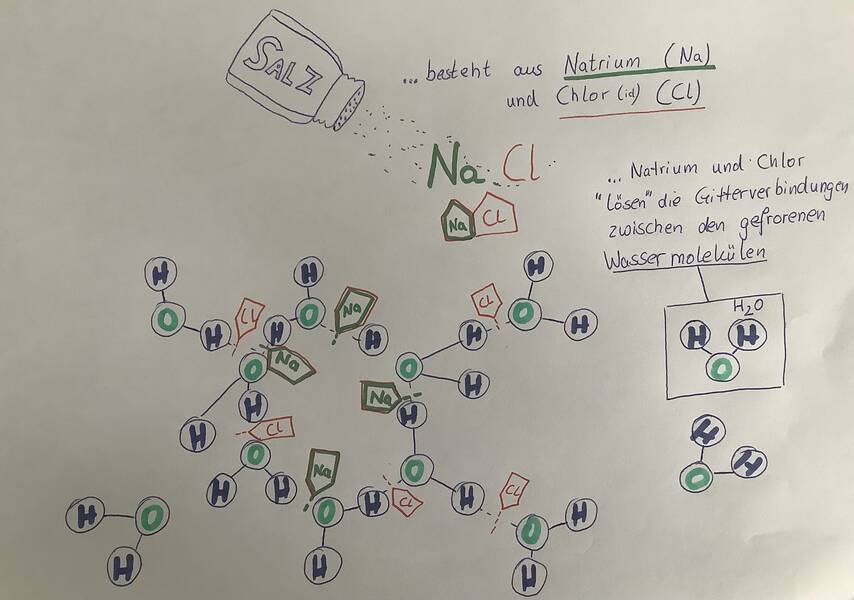 SALZ
...besteht aus Natrium (Na)
und Chlor(id) (Cl)
Na Cl
Na Cl
... Natrium und Chlor
"lösen" die Gitterverbindungen
zwischen den gefrorenen
Wassermolekülen
H₂O
H H
O
H
O
H
Cl
H
O
H
Na
H
Cl
H
O
H
O
Na
H
H
O
H
H
Na
H
Cl
O
H
H
Na
O
H
H
Cl
O
H
Cl
O
H
H
H
O
H
H
H
O